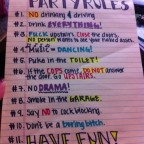 PARTY RULES
#1. NO drinking & driving
#2. Drink EVERYTHING!
#3. FUCK upstairs, close the doors,
NO person wants to see your naked asses.
#4. Music = DANCING!
#5. Puke in the TOILET!
#6. If the COPS come, DO NOT answer
the door. Go UPSTAIRS.
#7. NO DRAMA!
#8. Smoke in the GARAGE.
#9. Say NO to cock blocking.
#10. Don't be a boring bitch.
#11. HAVE FUN!